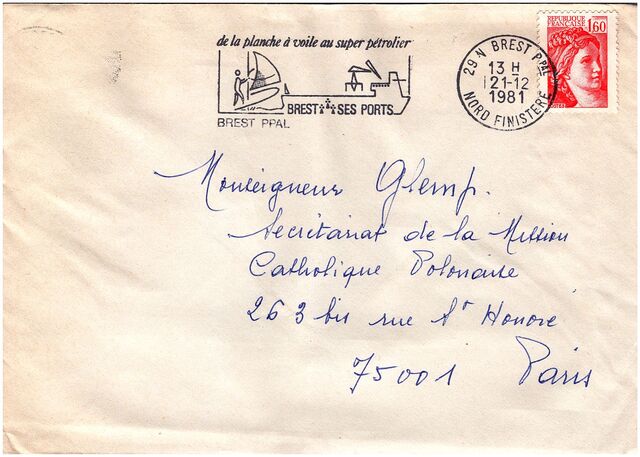 de la planche à voile au super pétrolier
BREST SES PORTS
BREST PPAL
29 N BREST PPAL
13 H
21-12
1981
NORD FINISTERE
REPUBLIQUE
FRANCAISE
1,60
POSTES
Monseigneur Glemp.
Secrétariat de la Mission
Catholique Polonaise
263 bis rue St Honoré
75001 Paris